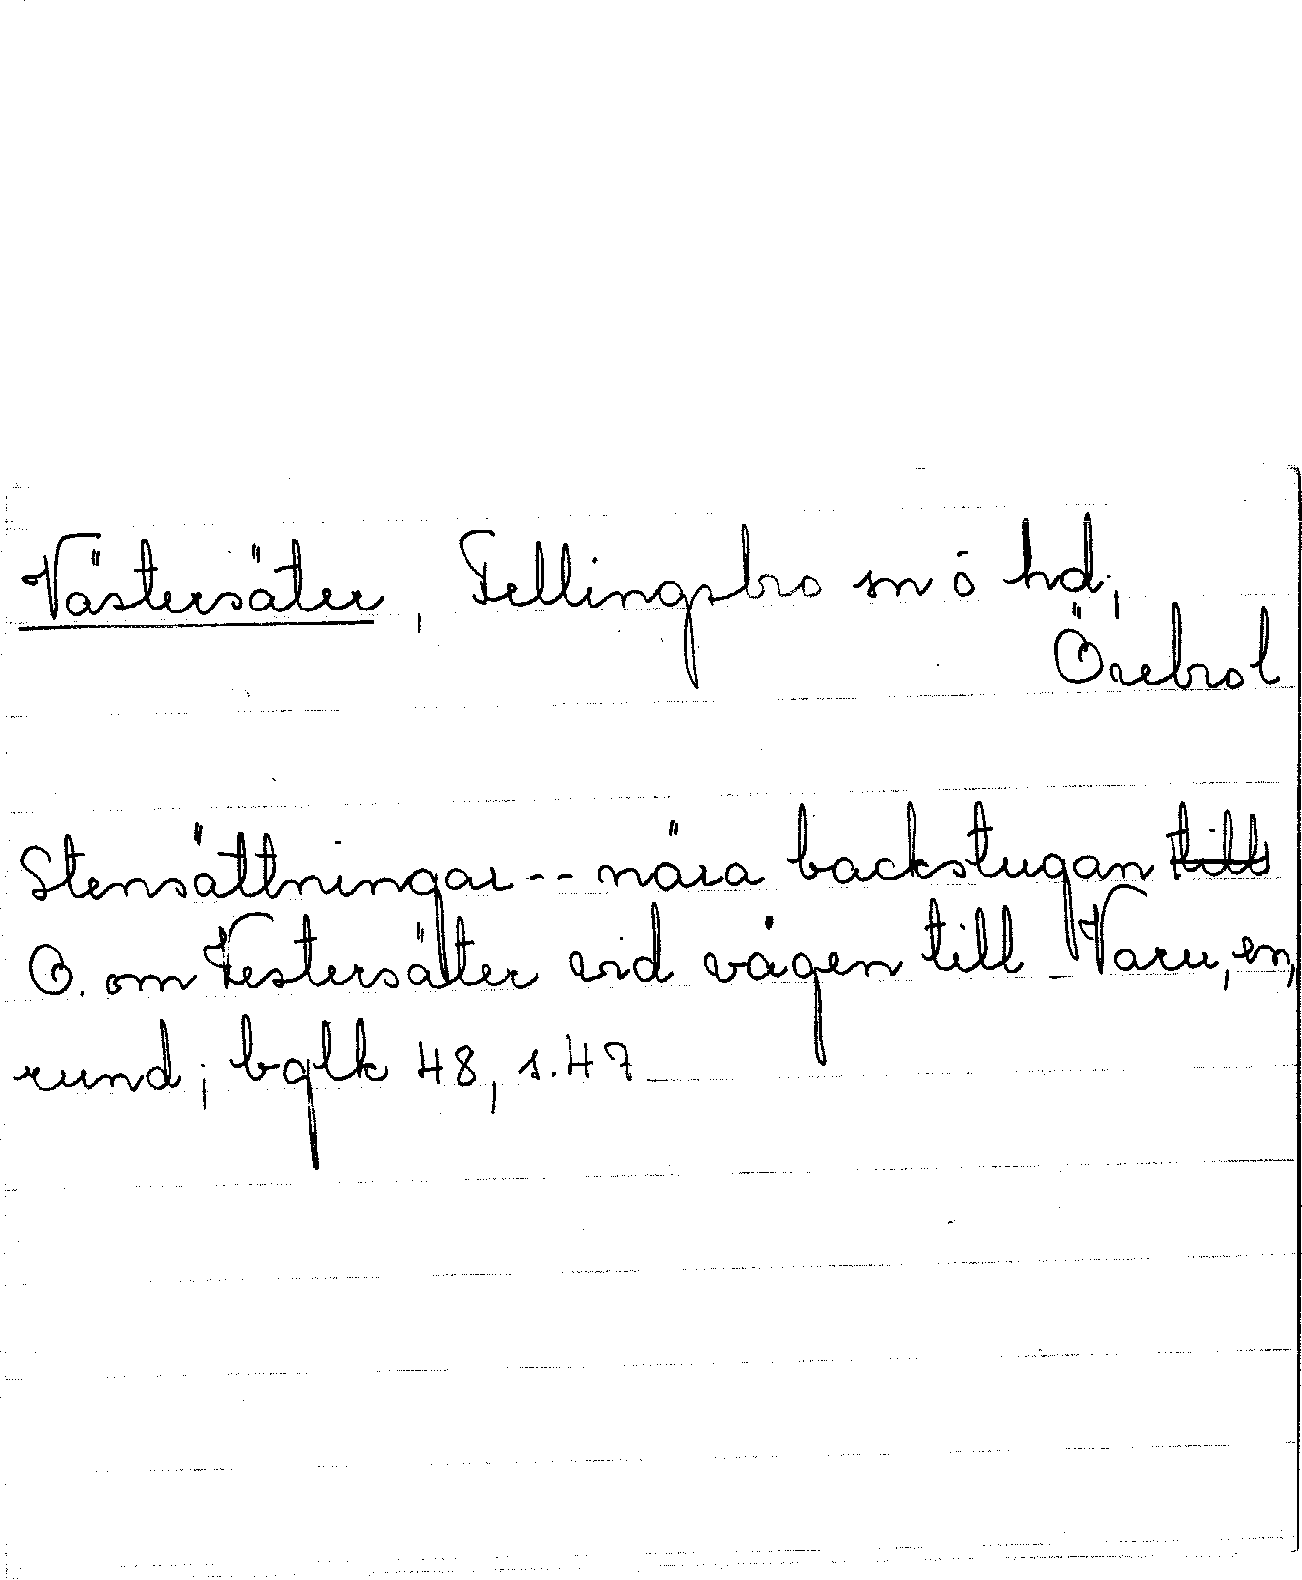 Västersäter, Fellingsbro sn o hd,
Örebro l
Stensättningar -- nära backstugan till
O. om Vestersäter vid vägen till Varu, en,
rund; bglk 48, s. 47